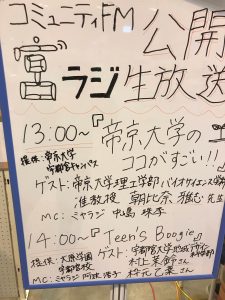 コミュニティFM 公開
宮ラジ生放送
13:00～『帝京大学の
ココがすごい!!』
提供：帝京大学
宇都宮キャンパス
ゲスト：帝京大学理工学部バイオサイエンス学科
准教授 朝比奈 雅志 先生
MC：ミヤラジ 中島 珠李
14:00～『Teen's Boogie』
提供：大原学園
宇都宮校
ゲスト：宇都宮大学地域デザイン科学部
村上 菜 さん
MC：ミヤラジ 阿久津
柿元 乙葉 さん